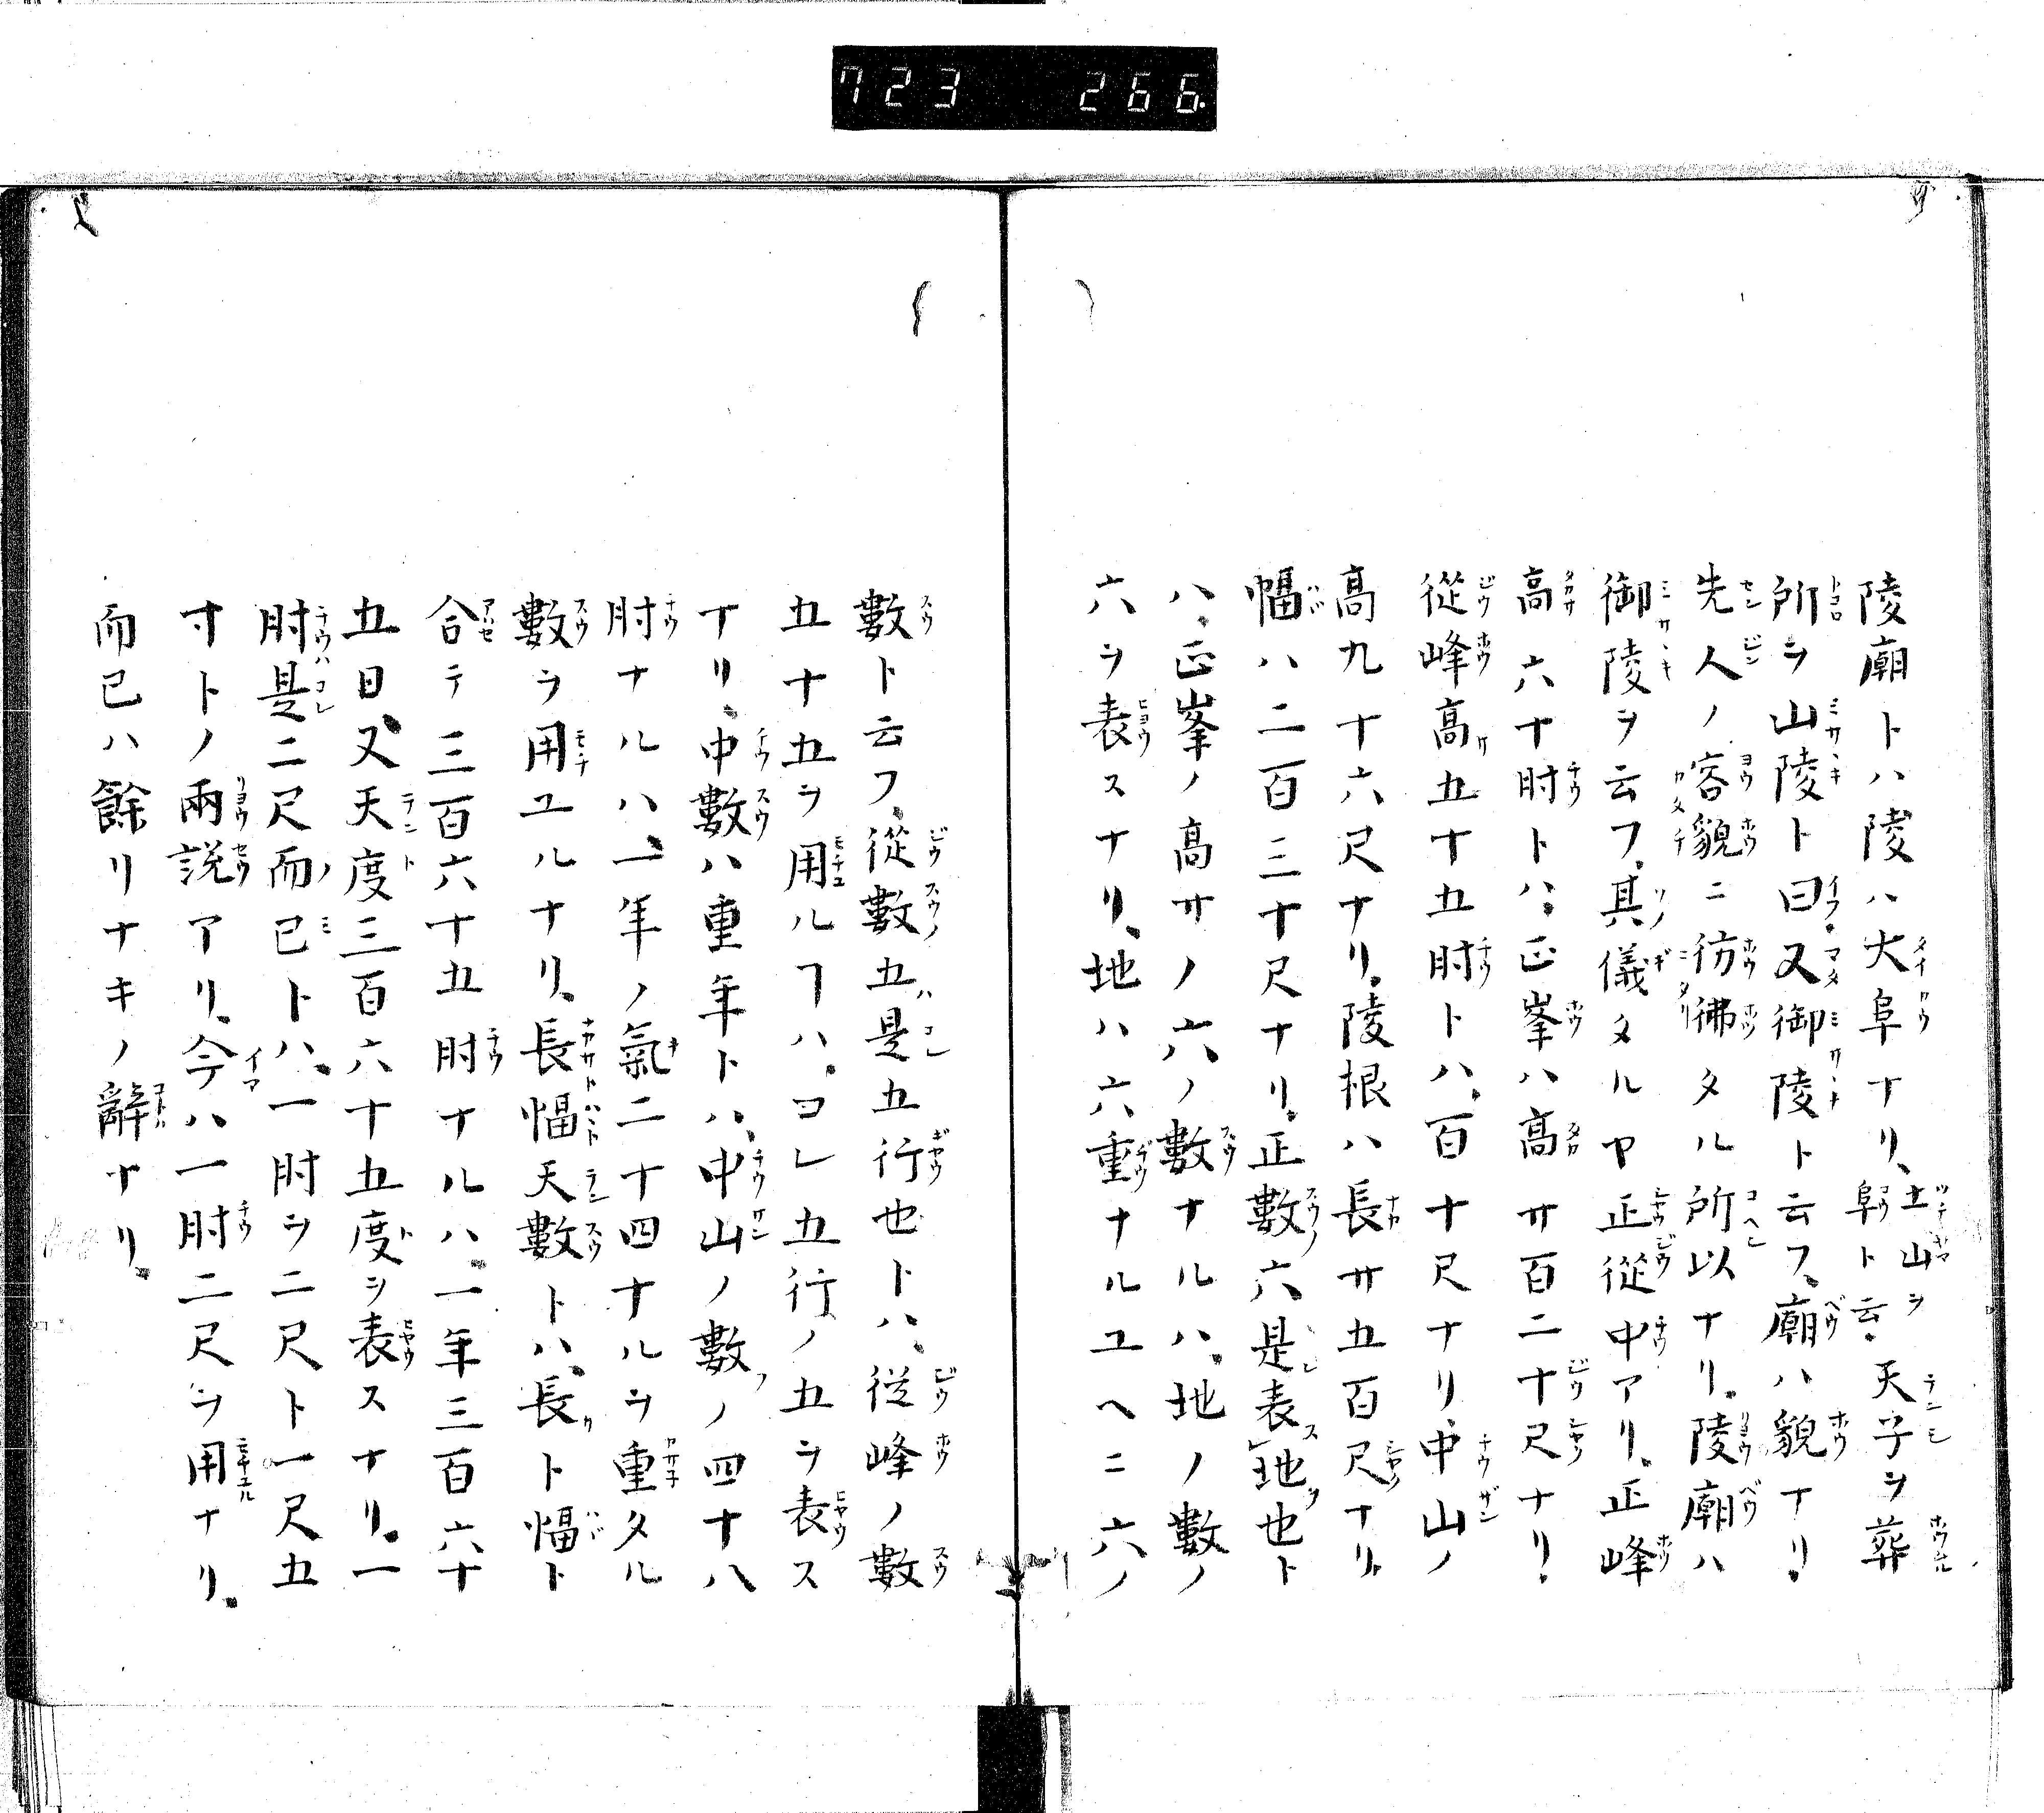 723 266.
陵廟トハ陵ハ大阜ナリ、土山ヲ阜ト云。天子ヲ葬
所ヲ山陵ト曰。又御陵ト云フ、廟ハ貌ナリ。
先人ノ容貌ニ彷彿タル所以ナリ。陵廟ハ
御陵ヲ云フ。其儀タルヤ正從中アリ。正峰
高六十肘トハ。正峯ハ高サ百二十尺ナリ。
從峰高五十五肘トハ。百十尺ナリ、中山ノ
高九十六尺ナリ。陵根ハ長サ五百尺ナリ。
幅ハ二百三十尺ナリ。正數六是表地也ト
ハ、正峯ノ高サノ六ノ數ナルハ。地ノ數ノ
六ヲ表スナリ。地ハ六重ナルユヘニ六ノ
數ト云フ。從數五是五行也トハ。從峰ノ數
五十五ヲ用ルヿハ。コレ五行ノ五ヲ表ス
ナリ、中數ハ重年トハ、中山ノ數ノ四十八
肘ナルハ、一年ノ氣二十四ナルヲ重タル
數ヲ用ユルナリ。長幅天數トハ、長ト幅ト
合テ三百六十五肘ナルハ。一年三百六十
五日、又天度三百六十五度ヲ表スナリ。一
肘是二尺而已トハ。一肘ヲ二尺ト一尺五
寸トノ兩説アリ。今ハ一肘二尺ヲ用ナリ。
而已ハ餘リナキノ辭ナリ。